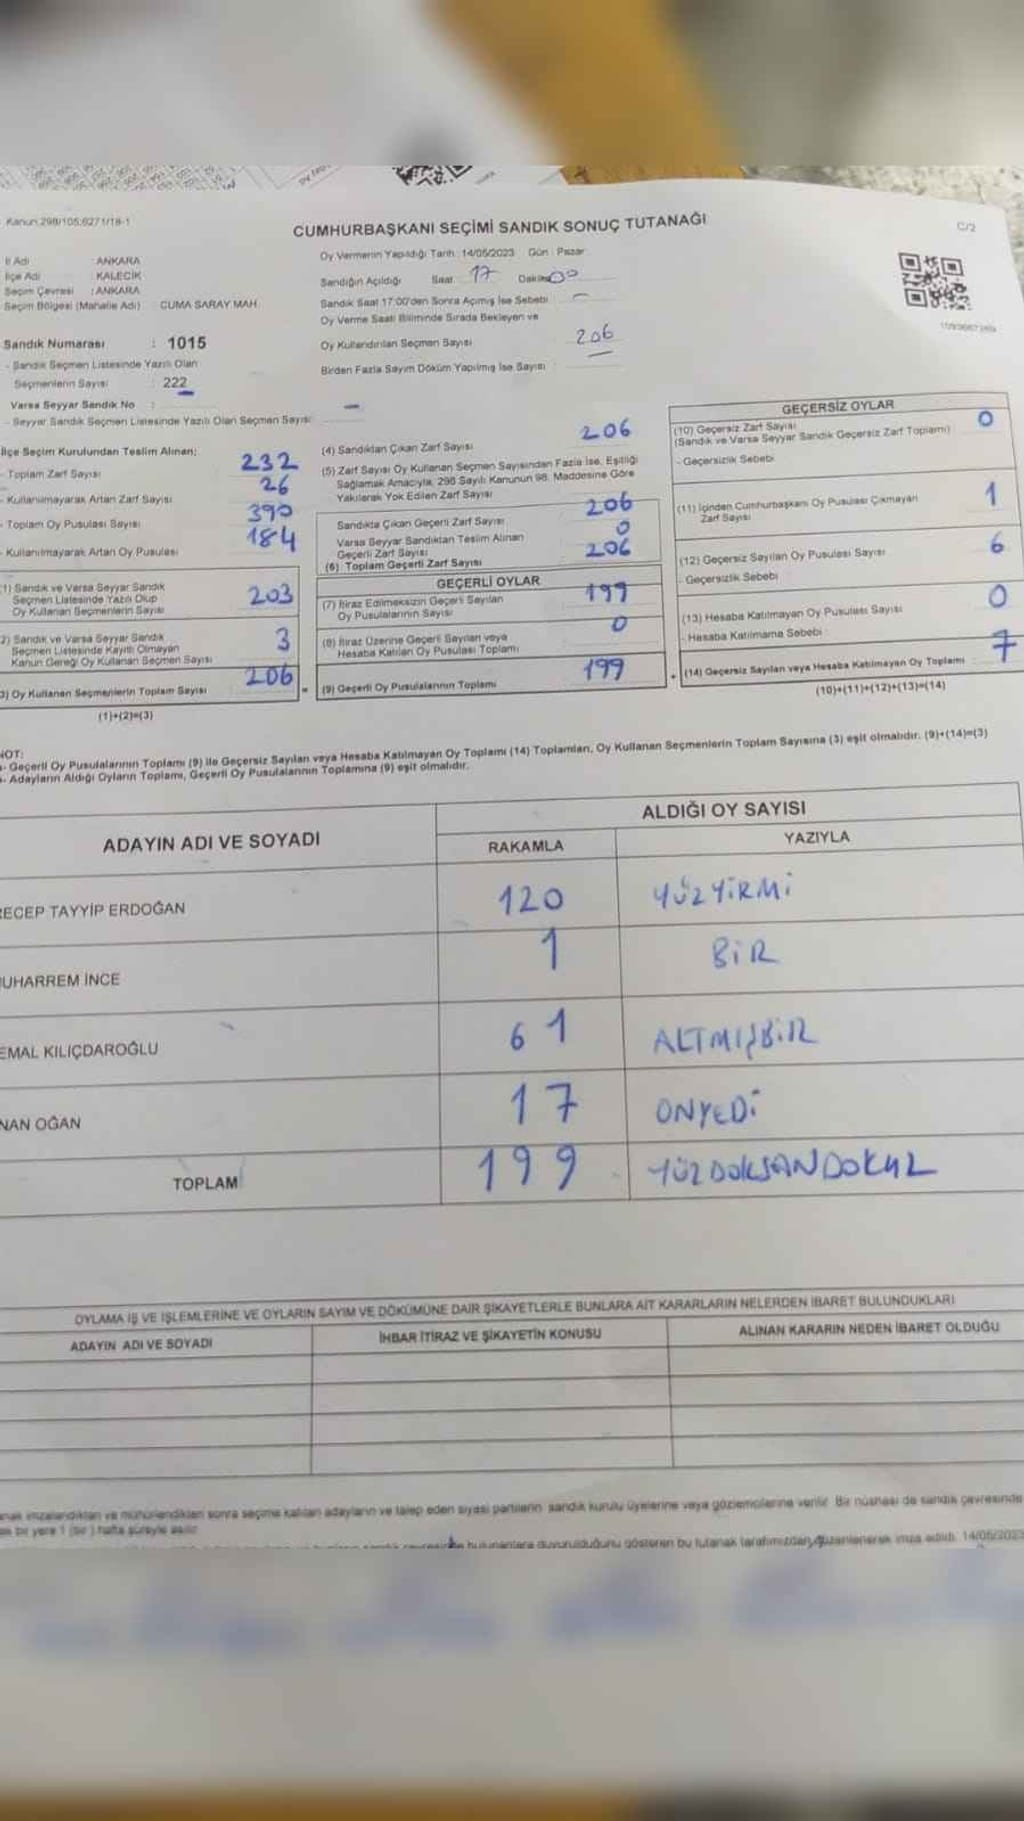 Kanun 298/105;6271/18-1
CUMHURBAŞKANI SEÇİMİ SANDIK SONUÇ TUTANAĞI
C/2
İl Adı : ANKARA
İlçe Adı : KALECİK
Seçim Çevresi : ANKARA
Seçim Bölgesi (Mahalle Adı) CUMA SARAY MAH.
Sandık Numarası : 1015
- Sandık Seçmen Listesinde Yazılı Olan
Seçmenlerin Sayısı : 222
Varsa Seyyar Sandık No :
- Seyyar Sandık Seçmen Listesinde Yazılı Olan Seçmen Sayısı: -
Oy Vermenin Yapıldığı Tarih : 14/05/2023 Gün : Pazar
Sandığın Açıldığı Saat 17 Dakika 00
Sandık Saat 17:00'den Sonra Açımış İse Sebebi -
Oy Verme Saati Bitiminde Sırada Bekleyen ve
Oy Kullandırılan Seçmen Sayısı 206
Birden Fazla Sayım Döküm Yapılmış İse Sayısı : -
İlçe Seçim Kurulundan Teslim Alınan;
- Toplam Zarf Sayısı 232
- Kullanılmayarak Artan Zarf Sayısı 26
- Toplam Oy Pusulası Sayısı 390
- Kullanılmayarak Artan Oy Pusulası 184
1) Sandık ve Varsa Seyyar Sandık
Seçmen Listesinde Yazılı Olup
Oy Kullanan Seçmenlerin Sayısı 203
2) Sandık ve Varsa Seyyar Sandık
Seçmen Listesinde Kayıtlı Olmayan
Kanun Gereği Oy Kullanan Seçmen Sayısı 3
3) Oy Kullanan Seçmenlerin Toplam Sayısı 206
(1)+(2)=(3)
(4) Sandıktan Çıkan Zarf Sayısı 206
(5) Zarf Sayısı Oy Kullanan Seçmen Sayısından Fazla İse, Eşitliği
Sağlamak Amacıyla, 298 Sayılı Kanunun 98. Maddesine Göre
Yakılarak Yok Edilen Zarf Sayısı
Sandıkta Çıkan Geçerli Zarf Sayısı 206
Varsa Seyyar Sandıktan Teslim Alınan
Geçerli Zarf Sayısı 0
(6) Toplam Geçerli Zarf Sayısı 206
GEÇERLİ OYLAR
(7) İtiraz Edilmeksizin Geçerli Sayılan
Oy Pusulalarının Sayısı 199
(8) İtiraz Üzerine Geçerli Sayılan veya
Hesaba Katılan Oy Pusulası Toplamı 0
= (9) Geçerli Oy Pusulalarının Toplamı 199
GEÇERSİZ OYLAR
(10) Geçersiz Zarf Sayısı 0
(Sandık ve Varsa Seyyar Sandık Geçersiz Zarf Toplamı)
- Geçersizlik Sebebi
(11) İçinden Cumhurbaşkanı Oy Pusulası Çıkmayan
Zarf Sayısı 1
(12) Geçersiz Sayılan Oy Pusulası Sayısı 6
- Geçersizlik Sebebi
(13) Hesaba Katılmayan Oy Pusulası Sayısı 0
- Hesaba Katılmama Sebebi
+ (14) Geçersiz Sayılan veya Hesaba Katılmayan Oy Toplamı 7
(10)+(11)+(12)+(13)=(14)
NOT:
- Geçerli Oy Pusulalarının Toplamı (9) ile Geçersiz Sayılan veya Hesaba Katılmayan Oy Toplamı (14) Toplamları, Oy Kullanan Seçmenlerin Toplam Sayısına (3) eşit olmalıdır. (9)+(14)=(3)
- Adayların Aldığı Oyların Toplamı, Geçerli Oy Pusulalarının Toplamına (9) eşit olmalıdır.
ADAYIN ADI VE SOYADI ALDIĞI OY SAYISI
RAKAMLA YAZIYLA
RECEP TAYYİP ERDOĞAN 120 YÜZYİRMİ
MUHARREM İNCE 1 BİR
KEMAL KILIÇDAROĞLU 61 ALTMIŞBİR
SİNAN OĞAN 17 ONYEDİ
TOPLAM 199 YÜZDOKSANDOKUZ
OYLAMA İŞ VE İŞLEMLERİNE VE OYLARIN SAYIM VE DÖKÜMÜNE DAİR ŞİKAYETLERLE BUNLARA AİT KARARLARIN NELERDEN İBARET BULUNDUKLARI
ADAYIN ADI VE SOYADI İHBAR İTİRAZ VE ŞİKAYETİN KONUSU ALINAN KARARIN NEDEN İBARET OLDUĞU
imzalandıktan ve mühürlendikten sonra seçime katılan adayların ve talep eden siyasi partilerin sandık kurulu üyelerine veya gözlemcilerine verilir. Bir nüshası de sandık çevresinde
bir yere 1 (bir) hafta süreyle asılır.
bulunanlara duyurulduğunu gösteren bu tutanak tarafımızdan düzenlenerek imza edildi. 14/05/2023